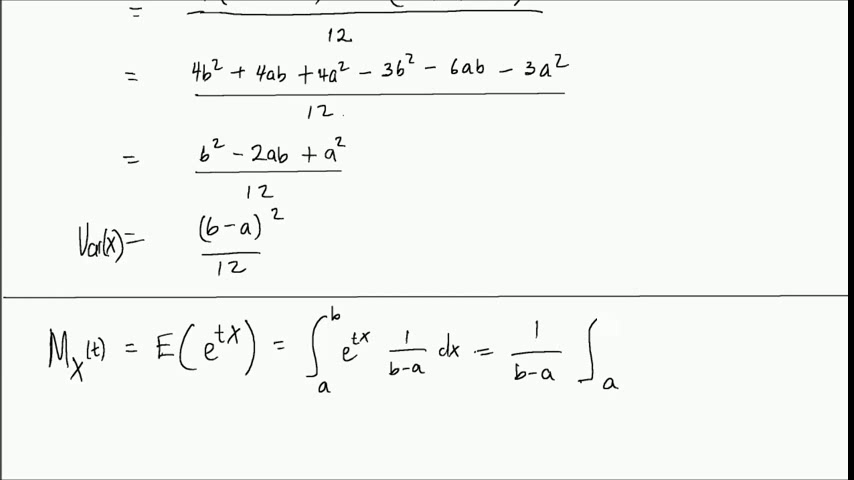 =
12
4b² + 4ab + 4a² − 3b² − 6ab − 3a²
=
12
b² − 2ab + a²
=
12
Var(X) = (b−a)²
12
M_X(t) = E(e^{tX}) = ∫_a^b e^{tx} 1/(b−a) dx = 1/(b−a) ∫_a